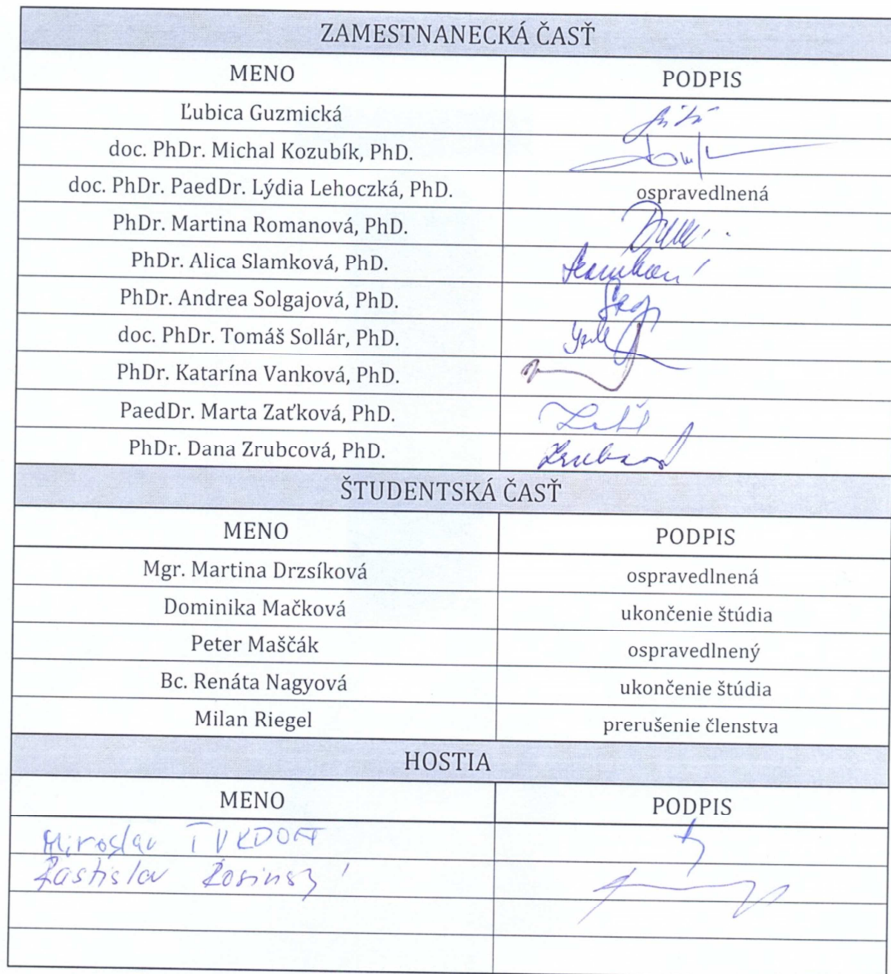 ZAMESTNANECKÁ ČASŤ
MENO PODPIS
Ľubica Guzmická
doc. PhDr. Michal Kozubík, PhD.
doc. PhDr. PaedDr. Lýdia Lehoczká, PhD. ospravedlnená
PhDr. Martina Romanová, PhD.
PhDr. Alica Slamková, PhD.
PhDr. Andrea Solgajová, PhD.
doc. PhDr. Tomáš Sollár, PhD.
PhDr. Katarína Vanková, PhD.
PaedDr. Marta Zaťková, PhD.
PhDr. Dana Zrubcová, PhD.
ŠTUDENTSKÁ ČASŤ
MENO PODPIS
Mgr. Martina Drzsíková ospravedlnená
Dominika Mačková ukončenie štúdia
Peter Maščák ospravedlnený
Bc. Renáta Nagyová ukončenie štúdia
Milan Riegel prerušenie členstva
HOSTIA
MENO PODPIS
Miroslav
Rastislav